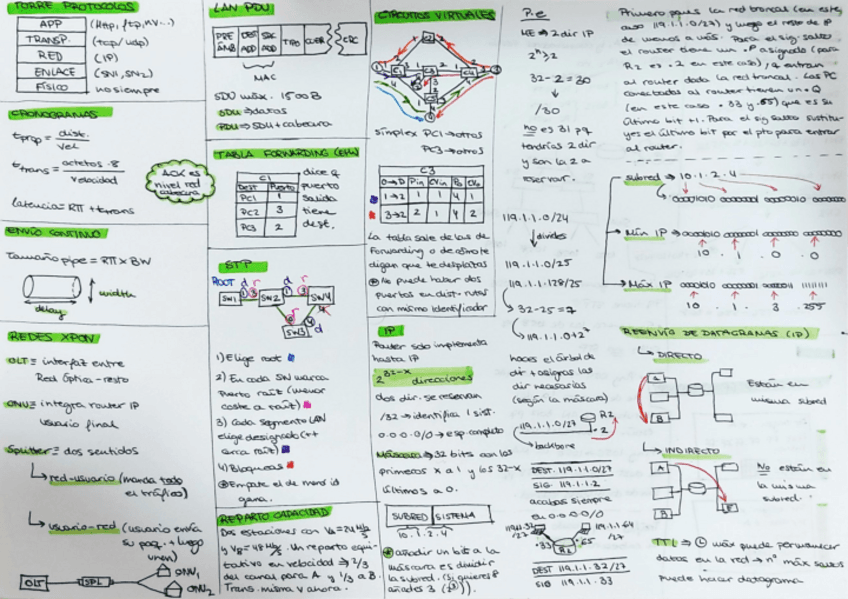 TORRE PROTOCOLOS
APP (http, ftp, ...)
TRANSP. (tcp/udp)
RED (IP)
ENLACE (SN1, SN2)
FÍSICO no siempre
CRONOGRAMAS
tprop = dist. / vel
ttrans = octetos · 8 / velocidad
ACK es
nivel red
cabecera
latencia = RTT + ttrans
ENVÍO CONTINUO
Tamaño pipe = RTT x BW
width
delay
REDES XPON
OLT ≡ interfaz entre
Red óptica - resto
ONU ≡ integra router IP
usuario final
Splitter ≡ dos sentidos
red-usuario (manda todo
el tráfico)
usuario-red (usuario envía
su paq. + luego
unen)
OLT SPL ONU1
ONU2
LAN PDU
PRE AMB DEST ADD SRC ADD TIPO CUER CRC
MAC
SDU máx. 1500B
SDU ⇒ datos
PDU ⇒ SDU + cabecera
TABLA FORWARDING (ETH)
C1
DEST Puerto
PC1 1
PC2 3
PC3 2
dice q
puerto
salida
tiene
dest.
STP
ROOT d r d r
SW1 SW2 SW4
SW3 d
1) Elige root
2) En cada SW marca
Puerto raíz (menor
coste a raíz)
3) Cada segmento LAN
elige designado (++
cerca raíz)
4) Bloqueas
Empate el de menor id
gana.
REPARTO CAPACIDAD
Dos estaciones con VA = 24 Mb/s
y VB = 48 Mb/s. Un reparto equi-
tativo en velocidad ⇒ 2/3
del canal para A y 1/3 a B.
Trans. misma v ahora.
CIRCUITOS VIRTUALES
simplex PC1 → otros
PC3 → otros
C3
O→D Pin CVin Po CVo
1→2 1 1 4 1
3→2 2 1 4 2
La tabla sale de las de
forwarding o de como te
digan que te desplatas
No puede haber dos
puertos en dist. rutas
con mismo identificador
IP
Router solo implementa
hasta IP
2^32-x direcciones
dos dir. se reservan
/32 → identifica 1 sist.
0.0.0.0/0 → esp. completo
Máscara → 32 bits con los
primeros x a 1 y los 32-x
últimos a 0.
SUBRED SISTEMA
10.1.2.4
añadir un bit a la
máscara es dividir
la subred. (Si quieres 8
añades 3 (2^3)).
P.e
4E → 2 dir IP
32 - 2 = 30
/30
no es 31 pq
tendrías 2 dir
y son la 2 a
reservar.
119.1.1.0/24
divides
119.1.1.0/25
119.1.1.128/25
32-25 = 7
haces el árbol de
dir + asignas las
dir necesarias
(según la máscara)
119.1.1.0/27 R2
.2
backbone
DEST. 119.1.1.0/27
SIG 119.1.1.2
acabas siempre
en 0.0.0.0
119.1.1.32/27 119.1.1.64/27
.33 .65
R2
DEST 119.1.1.32/27
SIG 119.1.1.33
Primero pones la red troncal (en este
caso 119.1.1.0/27) y luego el resto de IP
de menos a más. Para el sig salto
el router tiene un .P asignado (para
R2 es .2 en este caso), q entran
al router dada la red troncal. Las PC
conectadas al router tienen un .Q
(en este caso .33 y .65) que es su
último bit +1. Para el sig salto sustitu-
yes el último bit por el pto para entrar
al router.
subred → 10.1.2.4
00001010 00000001 00000010 00000100
Mín IP → 00001010 00000001 00000000 00000000
10 . 1 . 0 . 0
Máx IP → 00001010 00000001 00000011 11111111
10 . 1 . 3 . 255
REENVÍO DE DATAGRAMAS (IP)
DIRECTO
A
B
Están en
misma subred
INDIRECTO
A
B
F
No están en
la misma
subred.
TTL → máx puede permanecer
datos en la red → nº máx saltos
puede hacer datagrama